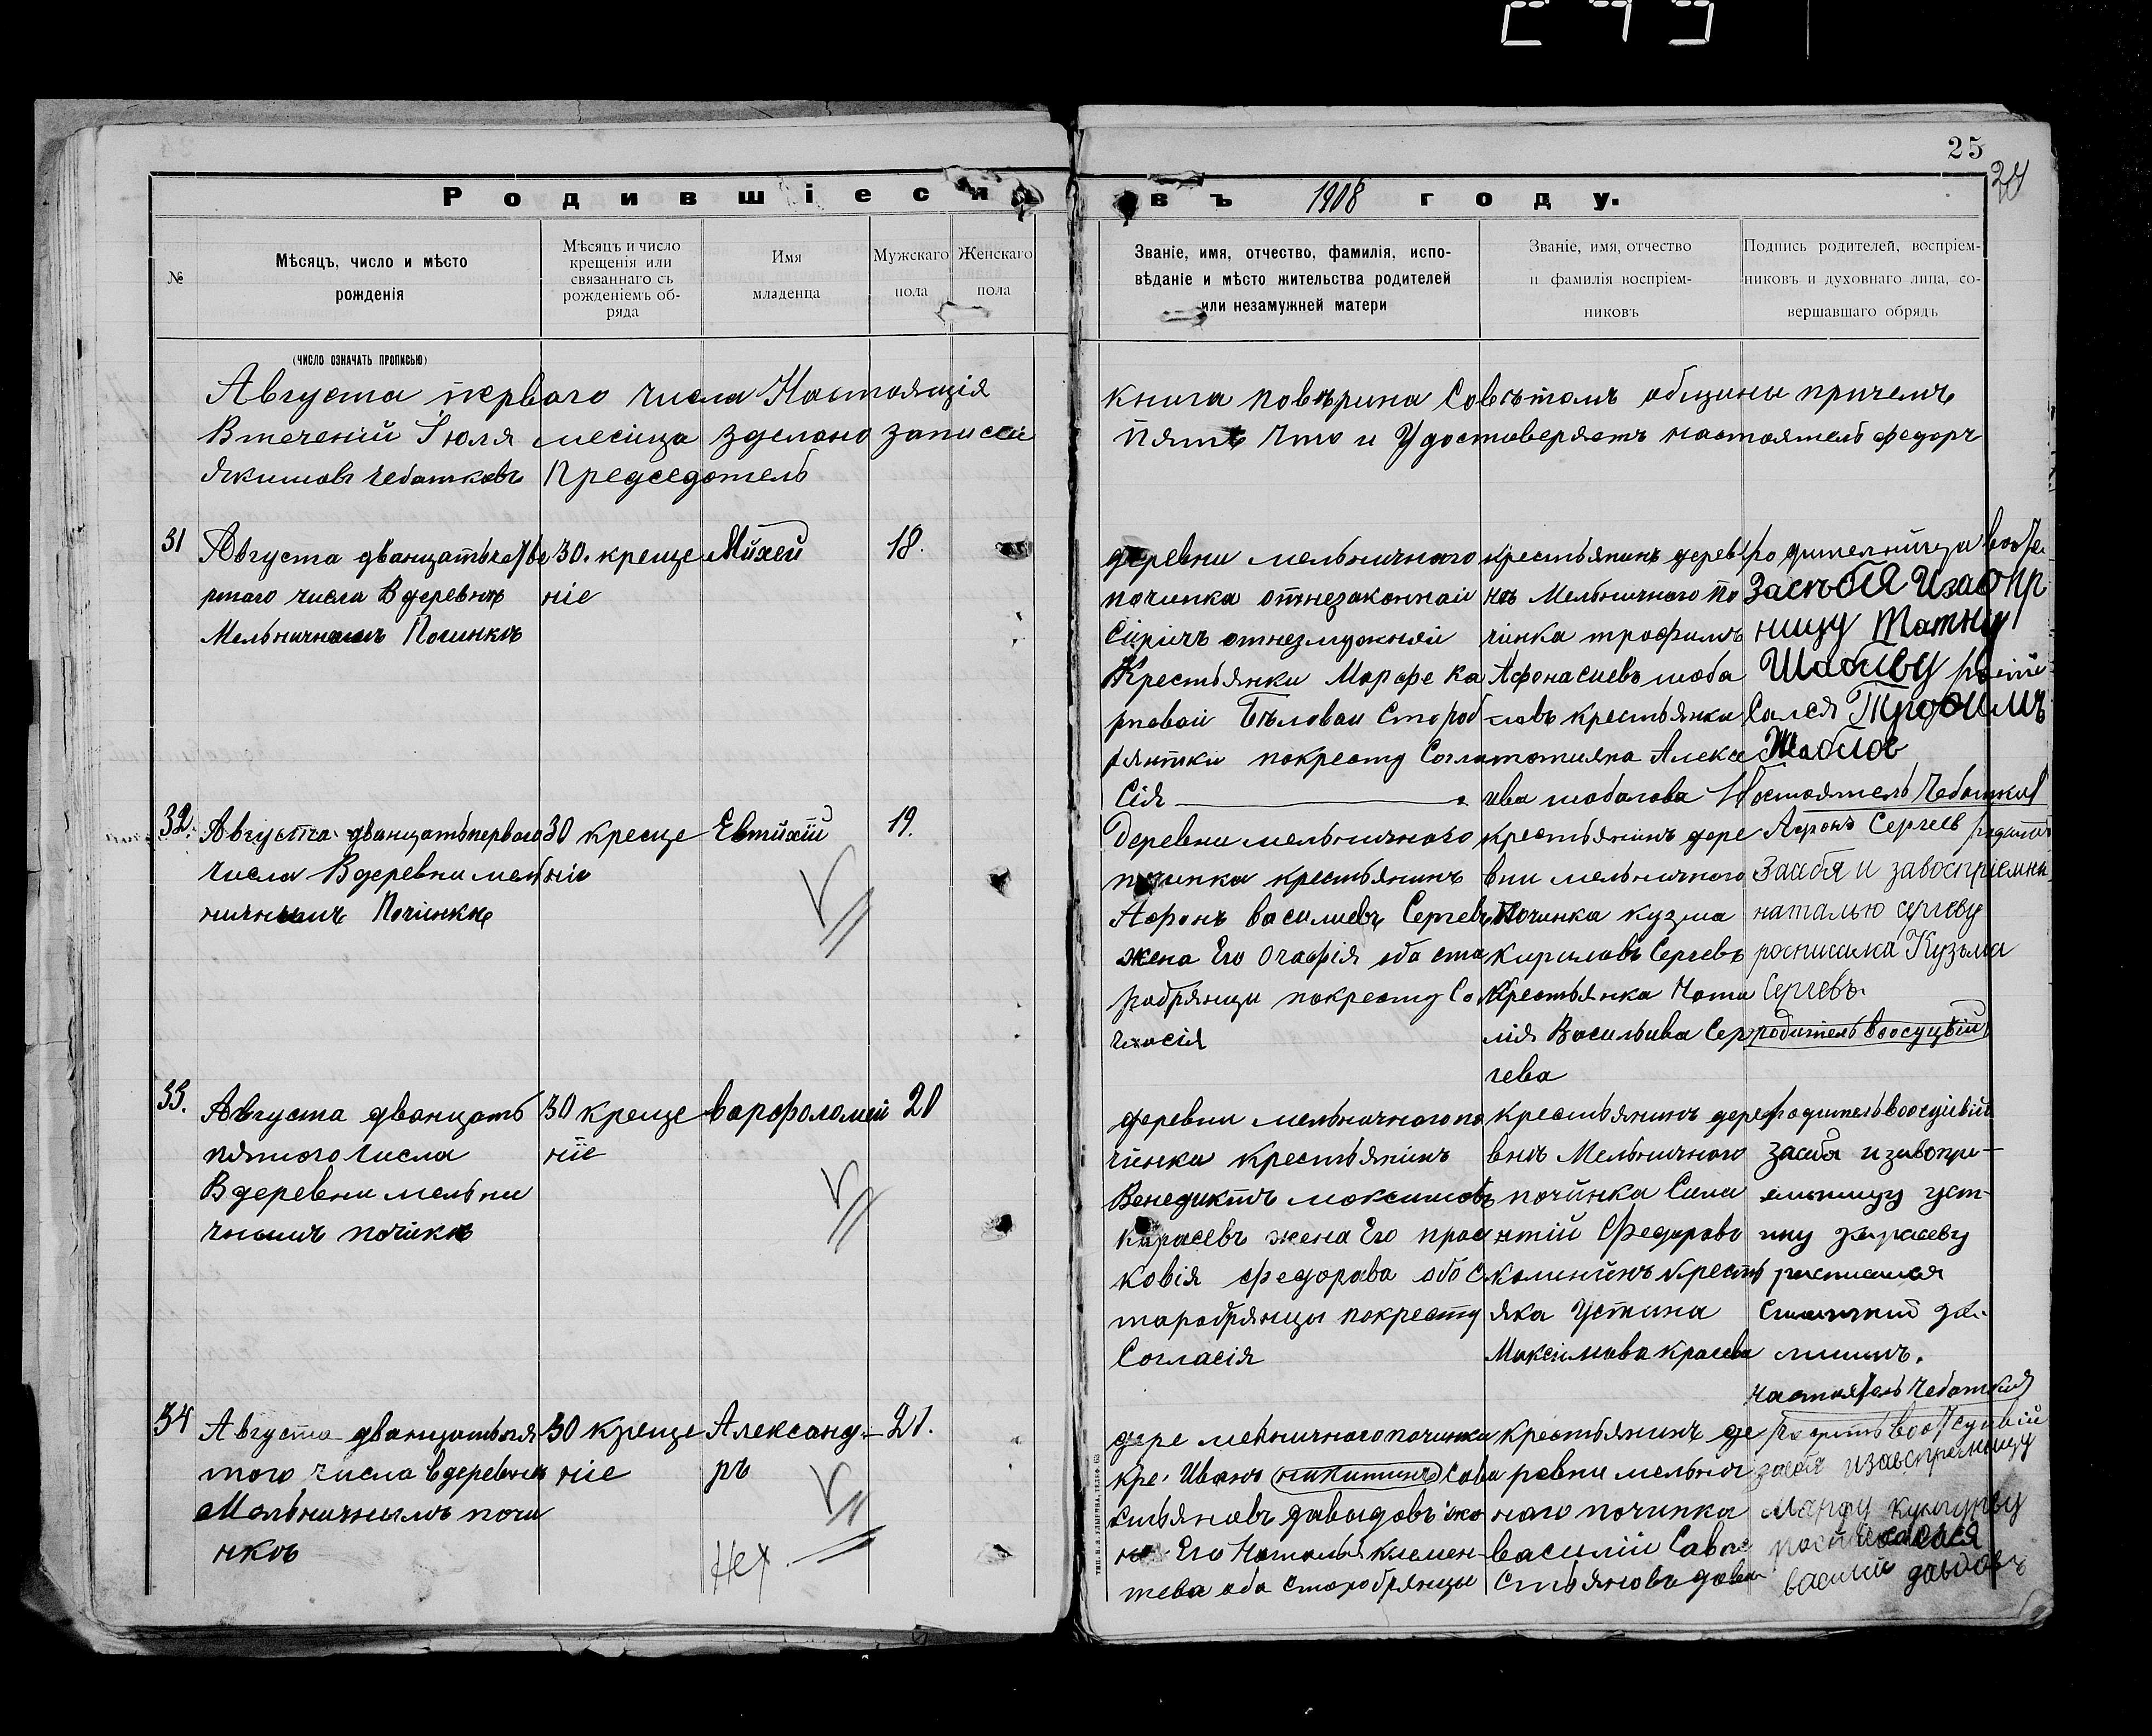 25
24
Родившіеся
въ 1908 году.
№
Мѣсяцъ, число и мѣсто
рожденія
Мѣсяцъ и число
крещенія или
связаннаго съ
рожденіемъ об-
ряда
Имя
младенца
Мужскаго
пола
Женскаго
пола
Званіе, имя, отчество, фамилія, испо-
вѣданіе и мѣсто жительства родителей
или незамужней матери
Званіе, имя, отчество
и фамилія воспріем-
никовъ
Подпись родителей, воспріем-
никовъ и духовнаго лица, со-
вершавшаго обрядъ
(число означать прописью)
Августа перваго числа Настоящія
книга повѣрина Совѣтомъ общины причемъ
Втеченій Іюля месіица зделано записей
пять что и Удостоверяетъ настоятель федоръ
Якимовъ Чебатковъ Председатель
31
Августа дванцатьчетве
ртаго числа Вдеревнѣ
Мельничномъ Починкѣ
30. креще
ніе
Михей
18.
деревни мельничнаго
починка отнезаконнаи
отнезмужняй
Крестьянки Марфе Ка
рповаи Бѣловаи Староб
рянтки покресту Согла
Сія
крестьянинъ дерев
нѣ Мельничного по
чинка трофимъ
Афонасиевъ шаба
ловъ крестьянка
татияна Алексе
ива шабалова
Засѣбя
ницу Татяну
Сался Трофимъ
Шаблов
Настоятель Чебатков
32.
Августа дванцатьперваго
числа Вдеревни мел
ничнымъ Починке
30 креще
ніе
Евтихій
19.
Деревни мельничного
починка крестьянинъ
Афонъ василиевъ Сергевъ
жена Его Огафія оба ста
робрянцы покресту Со
гласія
крестьянинъ дере
вни мельничного
Починка кузма
кириловъ Сергевъ
Крестьянка Ната
лія Васильива Сер
гева
Афонъ Сергеев
Засебя и завоспріемни
наталью сергеву
росписался Кузьма
Сергевъ.
33.
Августа дванцать
пятого числа
Вдеревни мельни
чнымъ почінкѣ
30 креще
ніе
варфоломей
20
деревни мельничного по
чинка крестьянинъ
Венедиктъ максимовъ
карасевъ жена Его прас
ковія федорова обо С
таробрянцы покресту
Согласія
крестьянинъ дере
внѣ Мельничного
починка Сила
нтій Федорово
калининъ крестя
яка Устина
Максимова
засебя
устину
расписался
настоятель Чебатков
34
Августа дванцатьпя
того числа вдеревнѣ
Мельничнымъ почи
нкѣ
30 креще
ніе
Александ-
ръ
21.
дере мельничного починка
кре. Иванъ никитинъ Сава
стьяновъ давыдовъ і же
на Его Наталья клемен-
тева оба старобрянцы
крестьянинъ де
ревни мельнич
ного починка
василій Савас
стьяновъ давы
марфу
василий давыдовъ